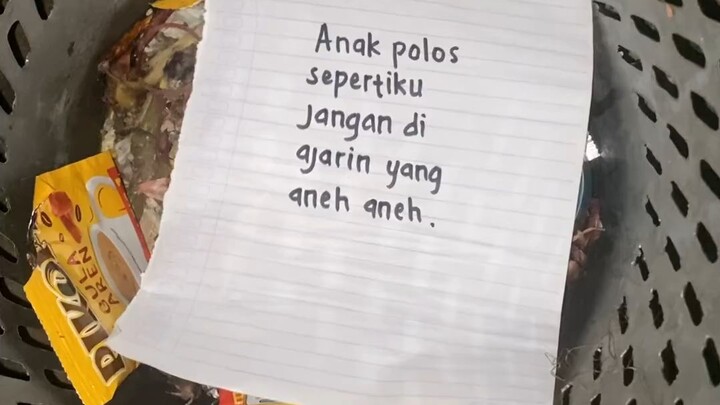 Anak polos
sepertiku
jangan di
ajarin yang
aneh aneh.
GULA
AREN